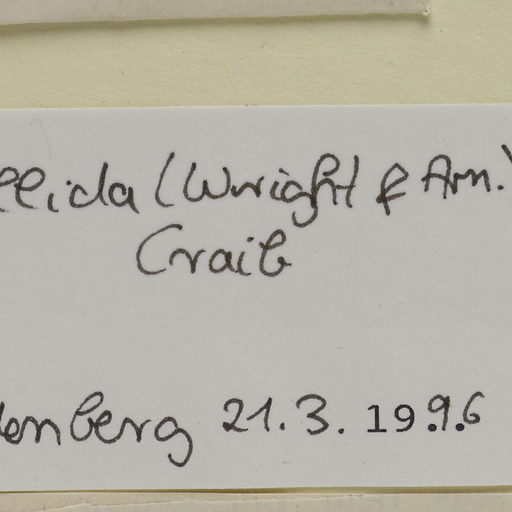 ellida (Wright & Arn.)
Craib
enberg 21.3.1996